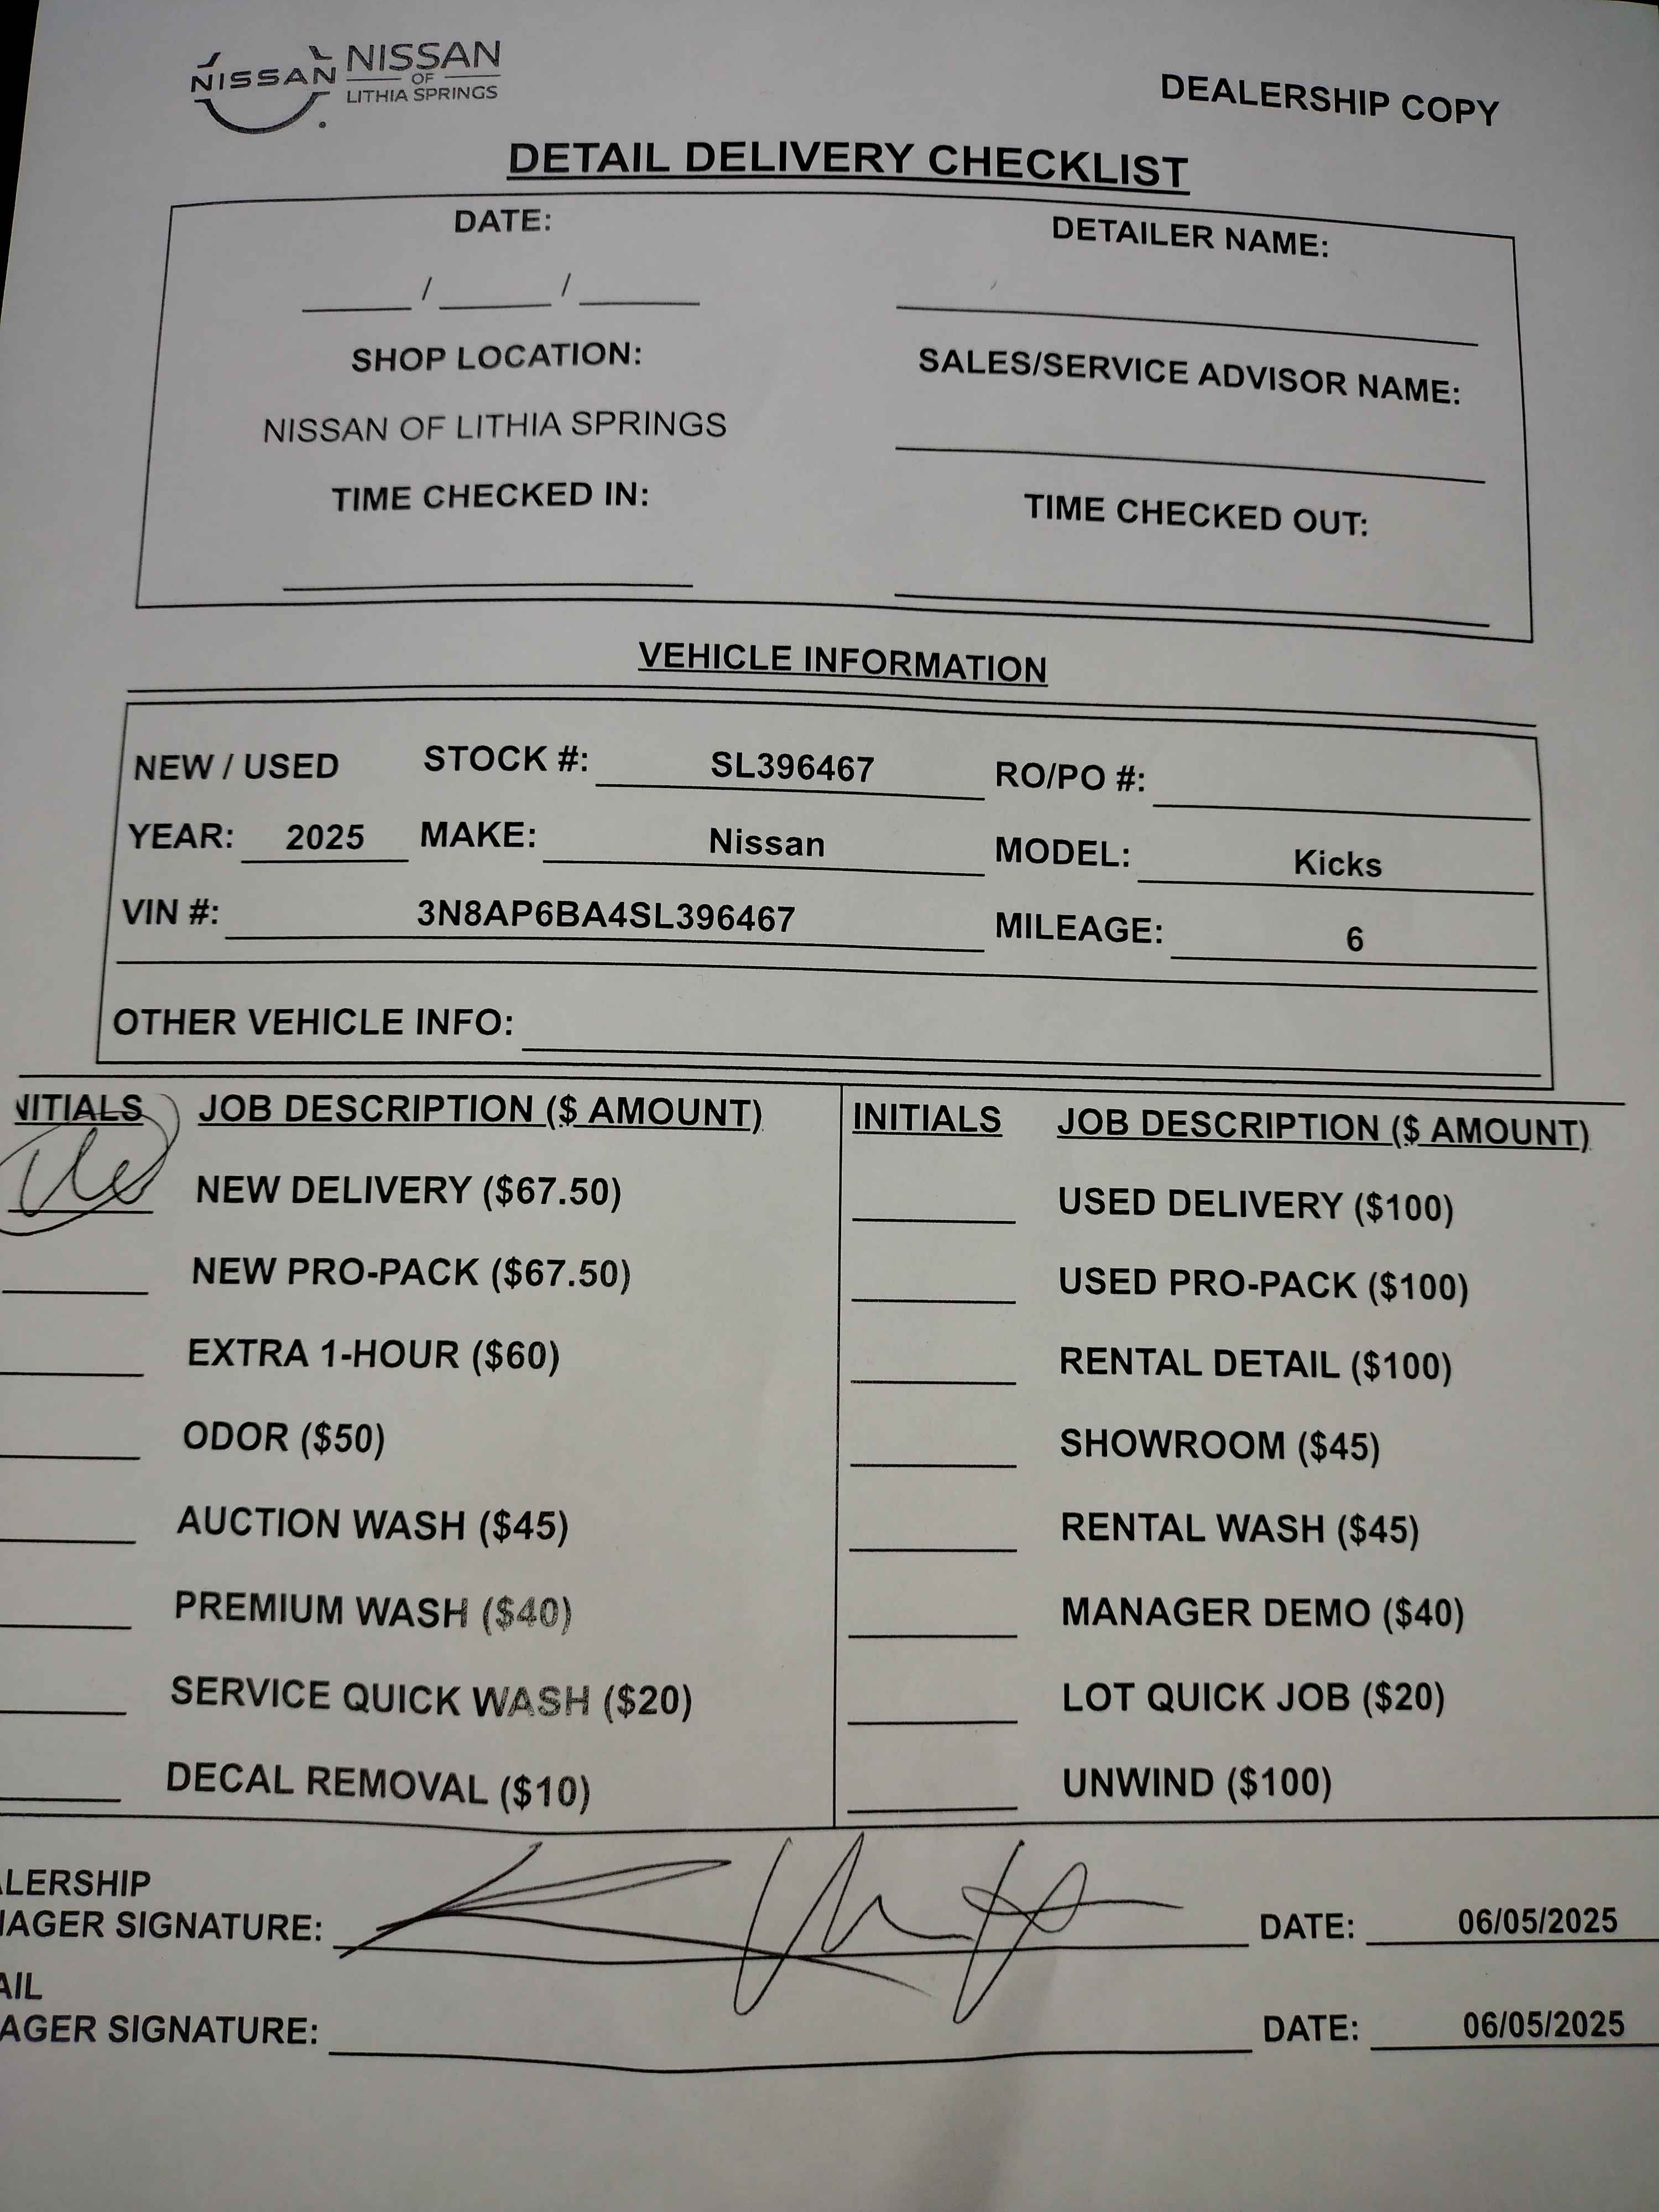 NISSAN NISSAN OF LITHIA SPRINGS
DEALERSHIP COPY
DETAIL DELIVERY CHECKLIST
DATE: DETAILER NAME:
/ /
SHOP LOCATION: SALES/SERVICE ADVISOR NAME:
NISSAN OF LITHIA SPRINGS
TIME CHECKED IN: TIME CHECKED OUT:
VEHICLE INFORMATION
NEW / USED STOCK #: SL396467 RO/PO #:
YEAR: 2025 MAKE: Nissan MODEL: Kicks
VIN #: 3N8AP6BA4SL396467 MILEAGE: 6
OTHER VEHICLE INFO:
NITIALS JOB DESCRIPTION ($ AMOUNT) INITIALS JOB DESCRIPTION ($ AMOUNT)
NEW DELIVERY ($67.50) USED DELIVERY ($100)
NEW PRO-PACK ($67.50) USED PRO-PACK ($100)
EXTRA 1-HOUR ($60) RENTAL DETAIL ($100)
ODOR ($50) SHOWROOM ($45)
AUCTION WASH ($45) RENTAL WASH ($45)
PREMIUM WASH ($40) MANAGER DEMO ($40)
SERVICE QUICK WASH ($20) LOT QUICK JOB ($20)
DECAL REMOVAL ($10) UNWIND ($100)
ALERSHIP
NAGER SIGNATURE: DATE: 06/05/2025
AIL
AGER SIGNATURE: DATE: 06/05/2025